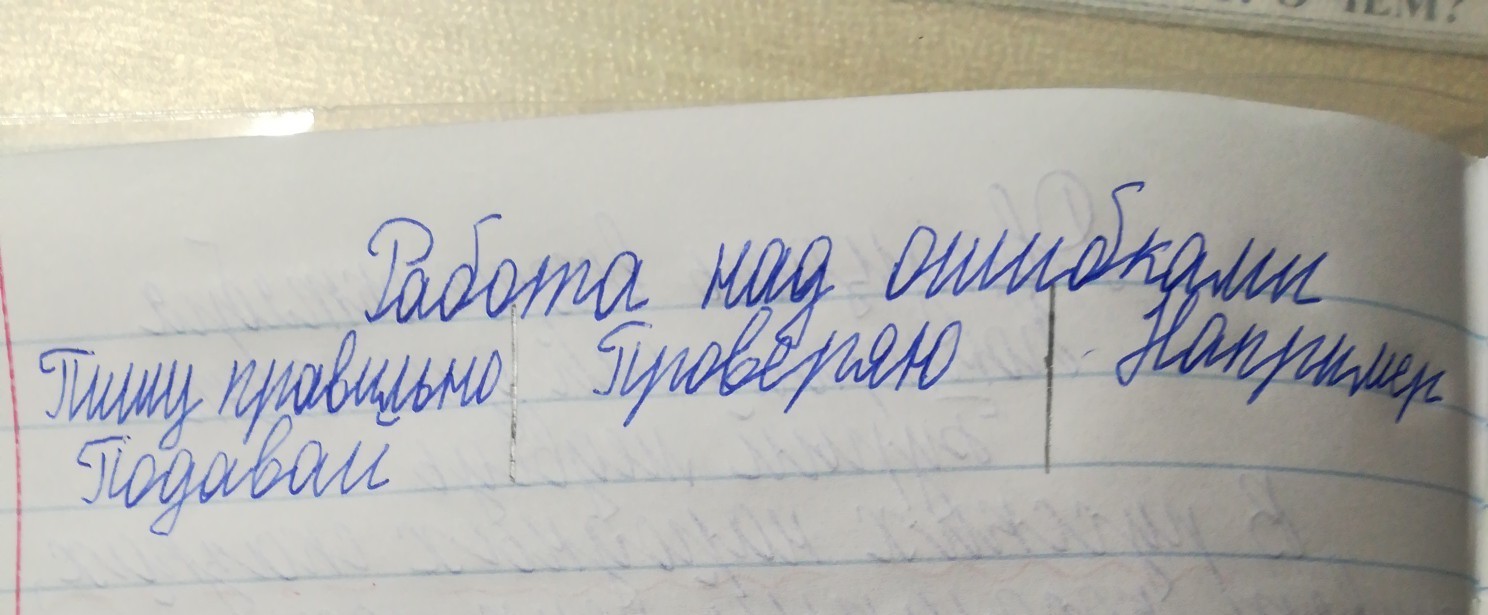 О ЧЕМ?
Работа над ошибками
Пишу правильно Проверяю Например
Подавай